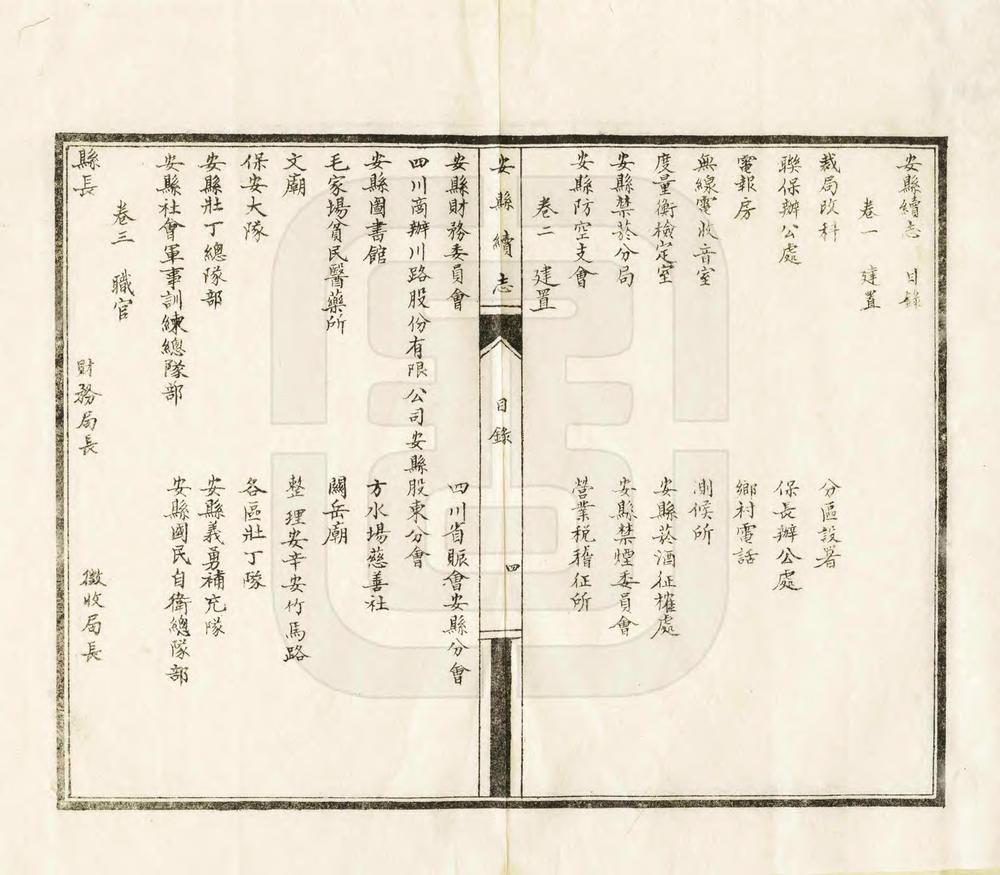 安縣續志　目錄
卷一　建置
裁局改科　分區設署
聯保辦公處　保長辦公處
電報房　鄉村電話
無線電收音室　測候所
度量衡檢定室　安縣菸酒征榷處
安縣禁菸分局　安縣禁煙委員會
安縣防空支會　營業稅稽征所
卷二　建置
安縣續志　目錄　四
安縣財務委員會　四川省賑會安縣分會
四川商辦川路股份有限公司安縣股東分會
安縣圖書館　方水場慈善社
毛家場貧民醫藥所　關岳廟
文廟　整理安辛安竹馬路
保安大隊　各區壯丁隊
安縣壯丁總隊部　安縣義勇補充隊
安縣社會軍事訓練總隊部　安縣國民自衛總隊部
卷三　職官
縣長　財務局長　徵收局長